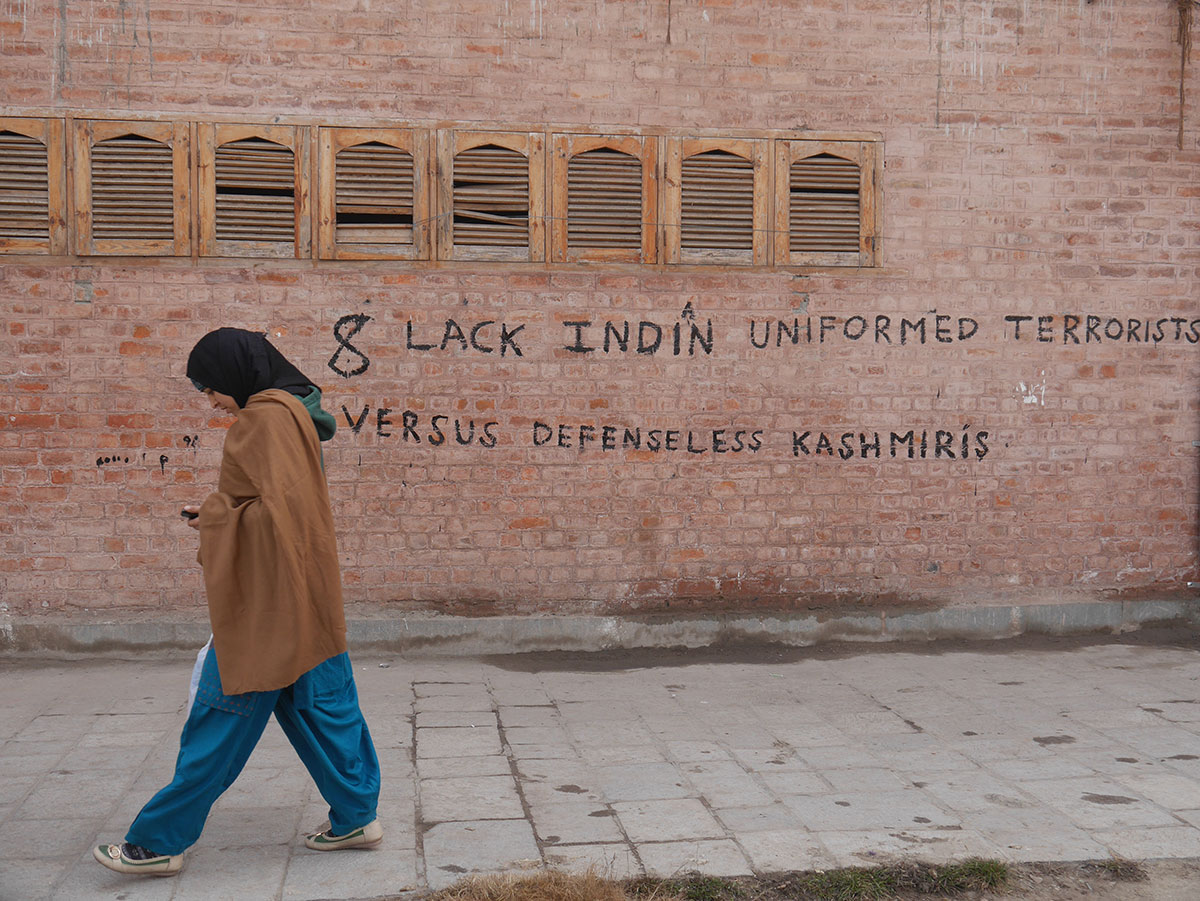 8 LACK INDIAN UNIFORMED TERRORISTS
VERSUS DEFENSELESS KASHMIRIS